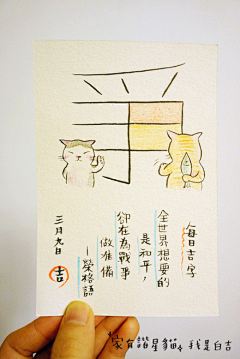 每日吉字
全世界想要的
是和平，
卻在為戰爭
做准備
—榮格語
三月九日
吉
家有諧星貓，我是白吉